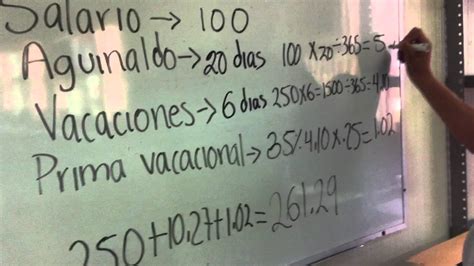 Salario → 100
Aguinaldo → 20 dias 100 x 20 ÷ 365 = 5
Vacaciones → 6 dias 250 x 6 = 1500 ÷ 365 = 4.10
Prima vacacional → 35% 4.10 x .25 = 1.02
250 + 10.27 + 1.02 = 261.29